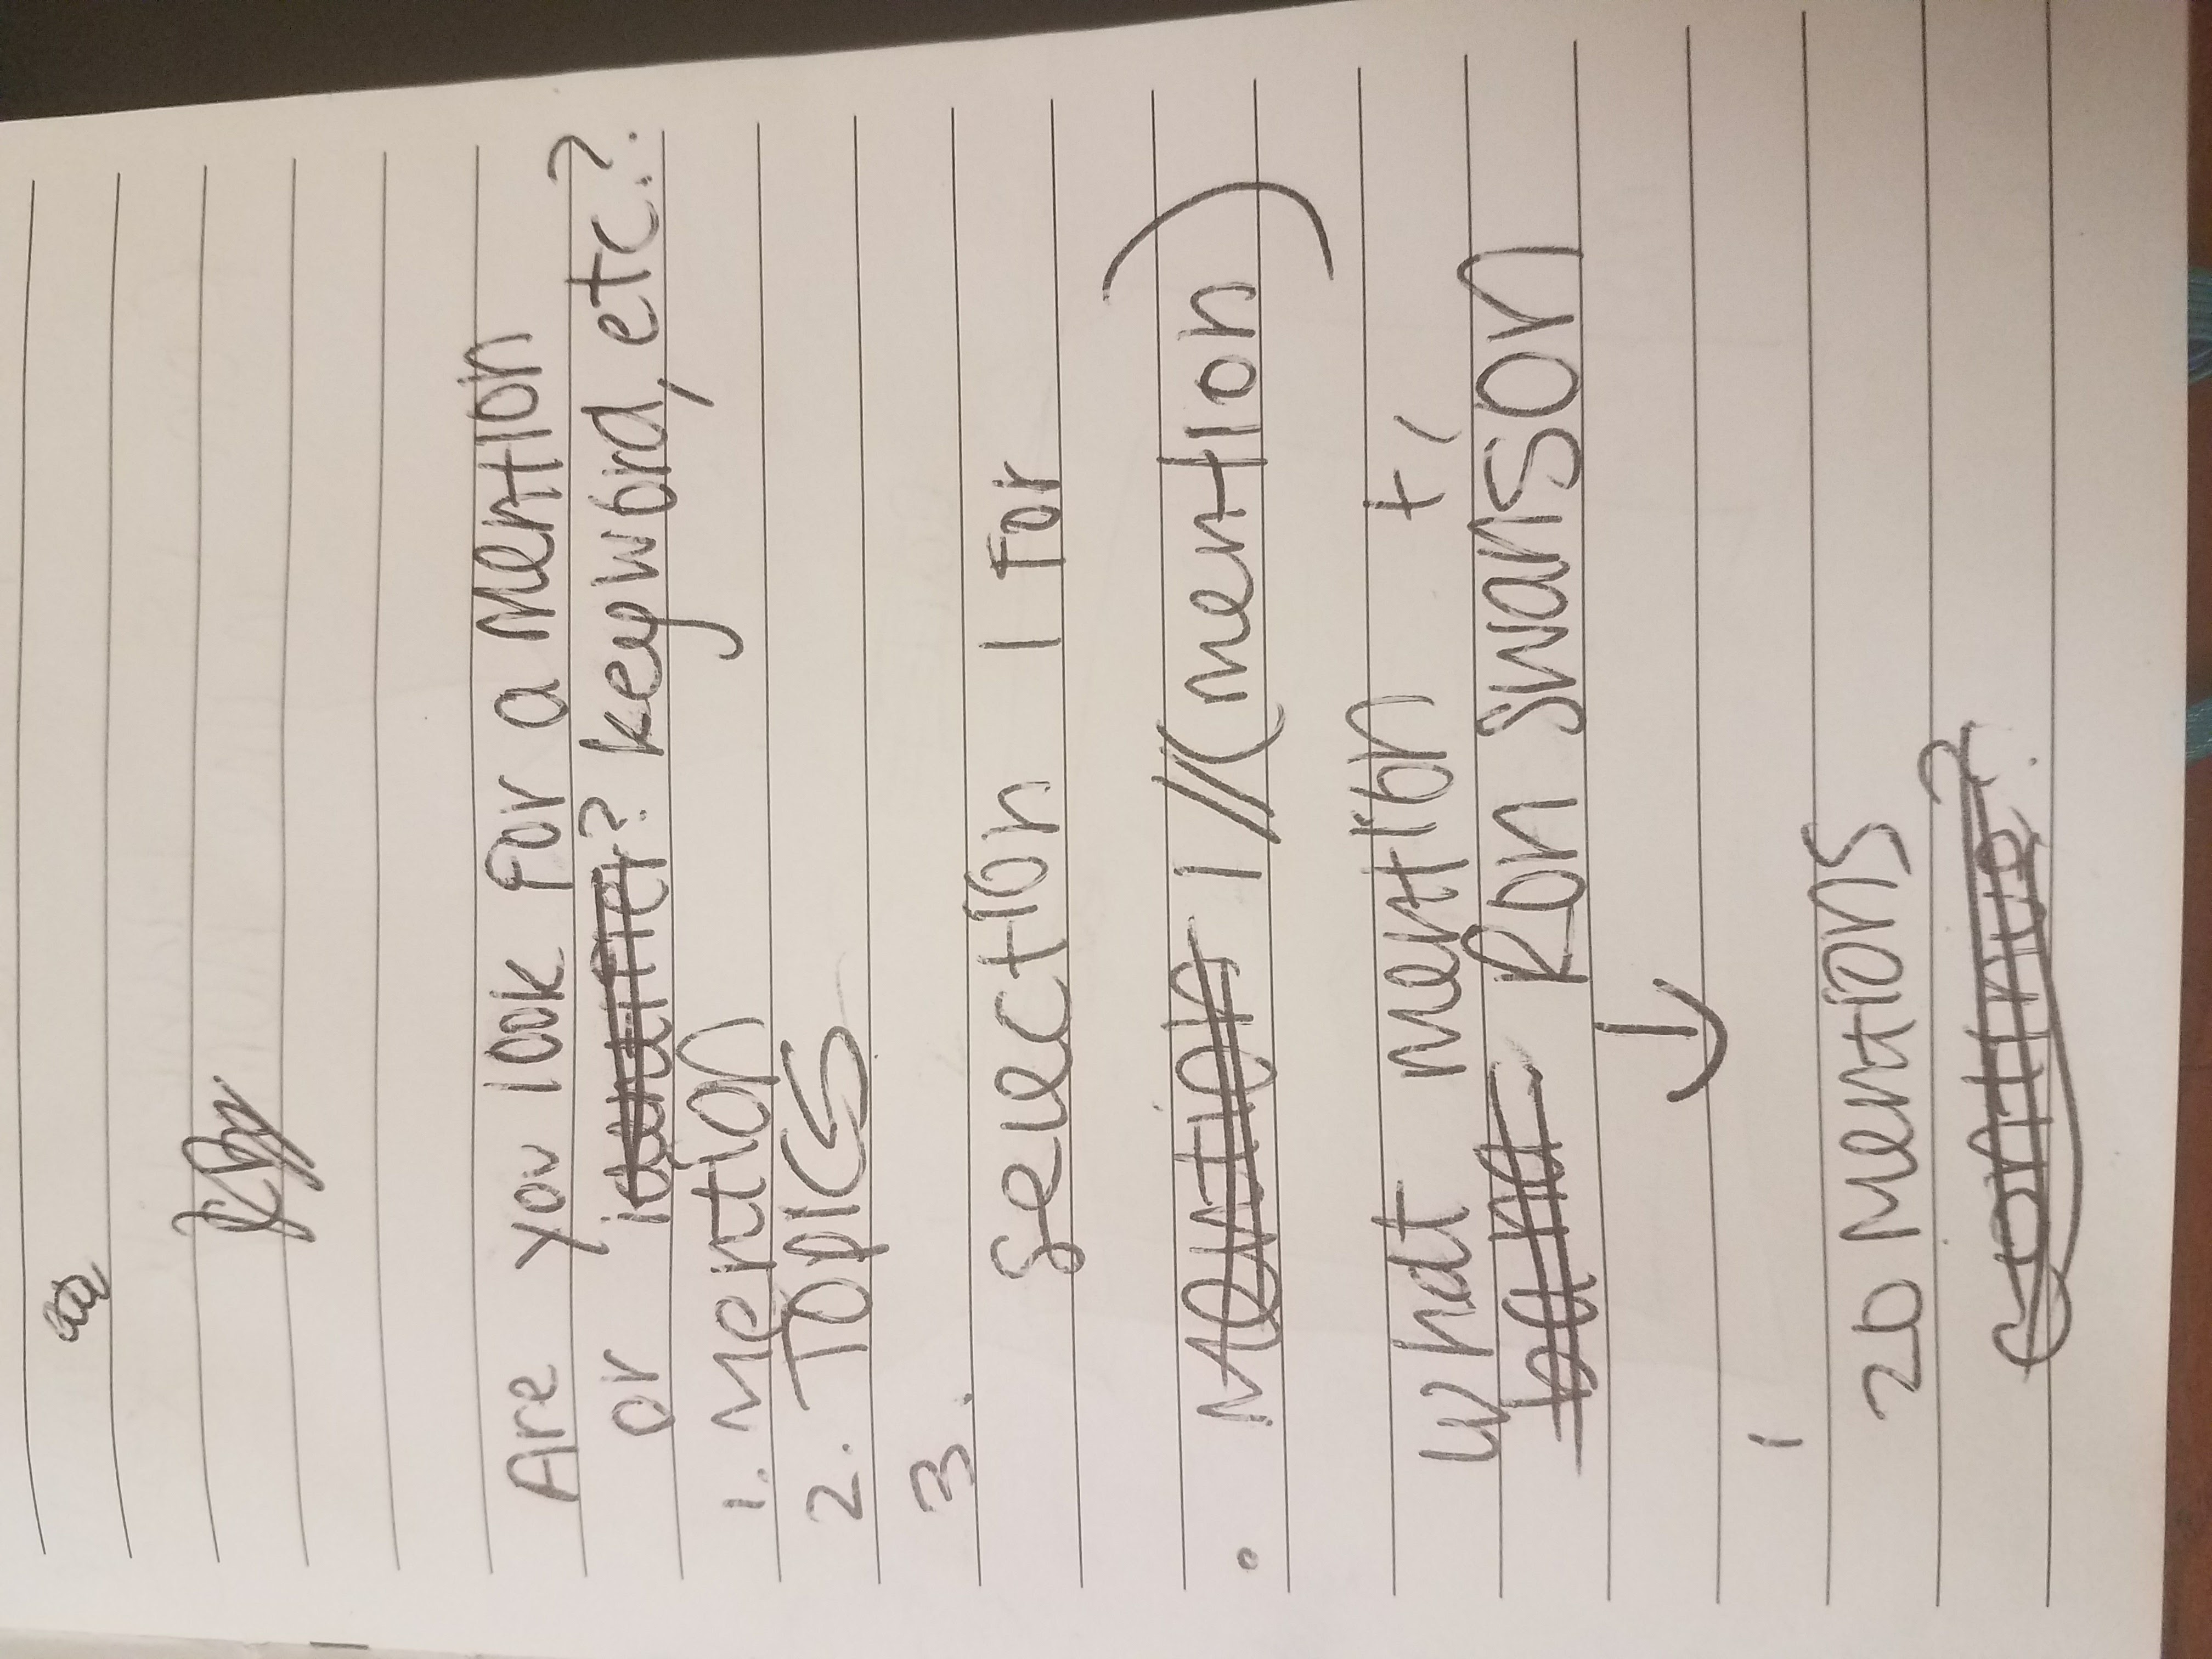 Are you look for a Mention
or identifier? keyword, etc.?
1. Mention
2. Topics
3.
selection 1 for
Mention 1 // (mention)
what mention
Ron Swanson
20 Mentions
Continue?